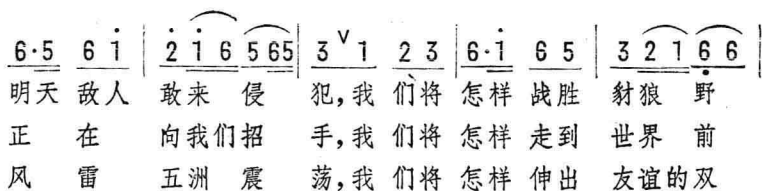 6·5 6 i | 2 i 6 5 65 | 3 ∨ 1 2 3 | 6·i 6 5 | 3 2 1 6 6 |
明天 敌人 敢来 侵 犯，我 们将 怎样 战胜 豺狼 野
正 在 向我们招 手，我 们将 怎样 走到 世界 前
风 雷 五洲 震 荡，我 们将 怎样 伸出 友谊的双